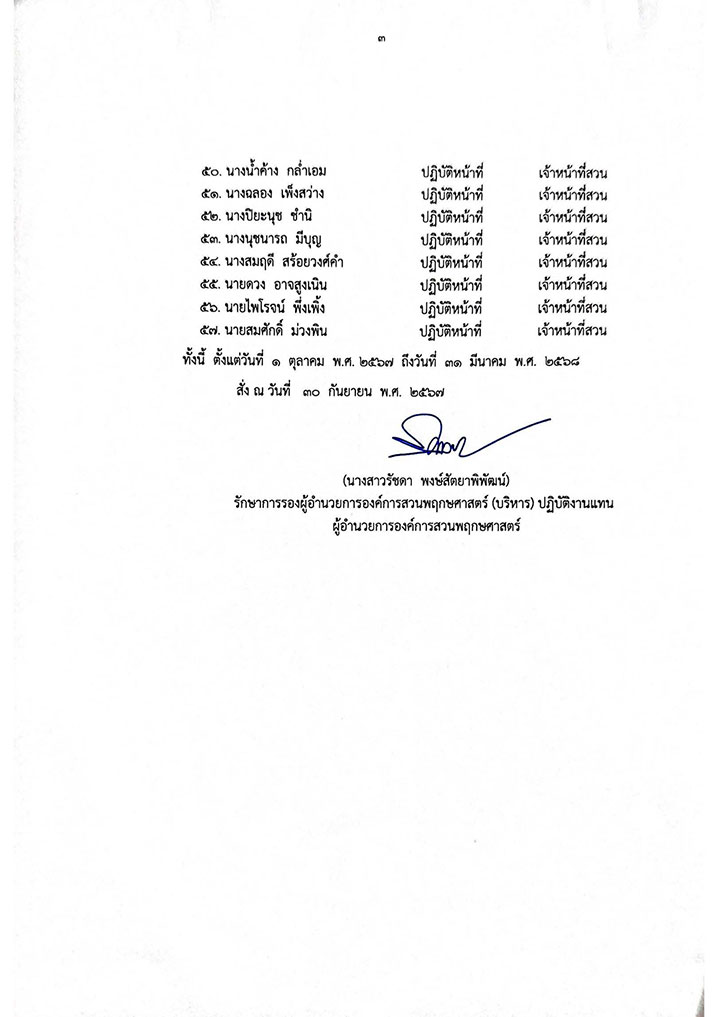 ๓
๕๐. นางน้ำค้าง กล่ำเอม ปฏิบัติหน้าที่ เจ้าหน้าที่สวน
๕๑. นางฉลอง เพ็งสว่าง ปฏิบัติหน้าที่ เจ้าหน้าที่สวน
๕๒. นางปิยะนุช ชำนิ ปฏิบัติหน้าที่ เจ้าหน้าที่สวน
๕๓. นางนุชนารถ มีบุญ ปฏิบัติหน้าที่ เจ้าหน้าที่สวน
๕๔. นางสมฤดี สร้อยวงศ์คำ ปฏิบัติหน้าที่ เจ้าหน้าที่สวน
๕๕. นายดวง อาจสูงเนิน ปฏิบัติหน้าที่ เจ้าหน้าที่สวน
๕๖. นายไพโรจน์ พึ่งเพิ้ง ปฏิบัติหน้าที่ เจ้าหน้าที่สวน
๕๗. นายสมศักดิ์ ม่วงพิน ปฏิบัติหน้าที่ เจ้าหน้าที่สวน
ทั้งนี้ ตั้งแต่วันที่ ๑ ตุลาคม พ.ศ. ๒๕๖๗ ถึงวันที่ ๓๑ มีนาคม พ.ศ. ๒๕๖๘
สั่ง ณ วันที่ ๓๐ กันยายน พ.ศ. ๒๕๖๗
(นางสาวรัชดา พงษ์สัตยาพิพัฒน์)
รักษาการรองผู้อำนวยการองค์การสวนพฤกษศาสตร์ (บริหาร) ปฏิบัติงานแทน
ผู้อำนวยการองค์การสวนพฤกษศาสตร์